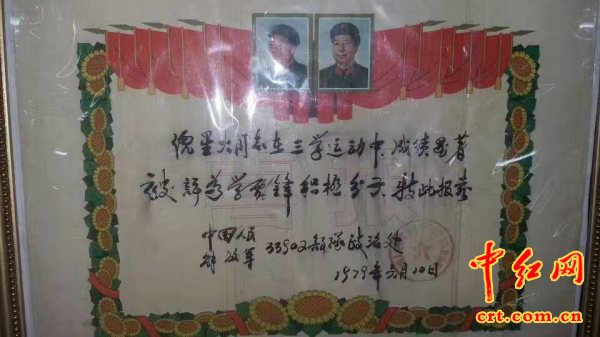 倪星火同志在三学运动中,成绩显著
被评为学雷锋积极分子 特此报喜
中国人民
解放军 33902部队政治处
1979年3月10日
中红网
crt.com.cn